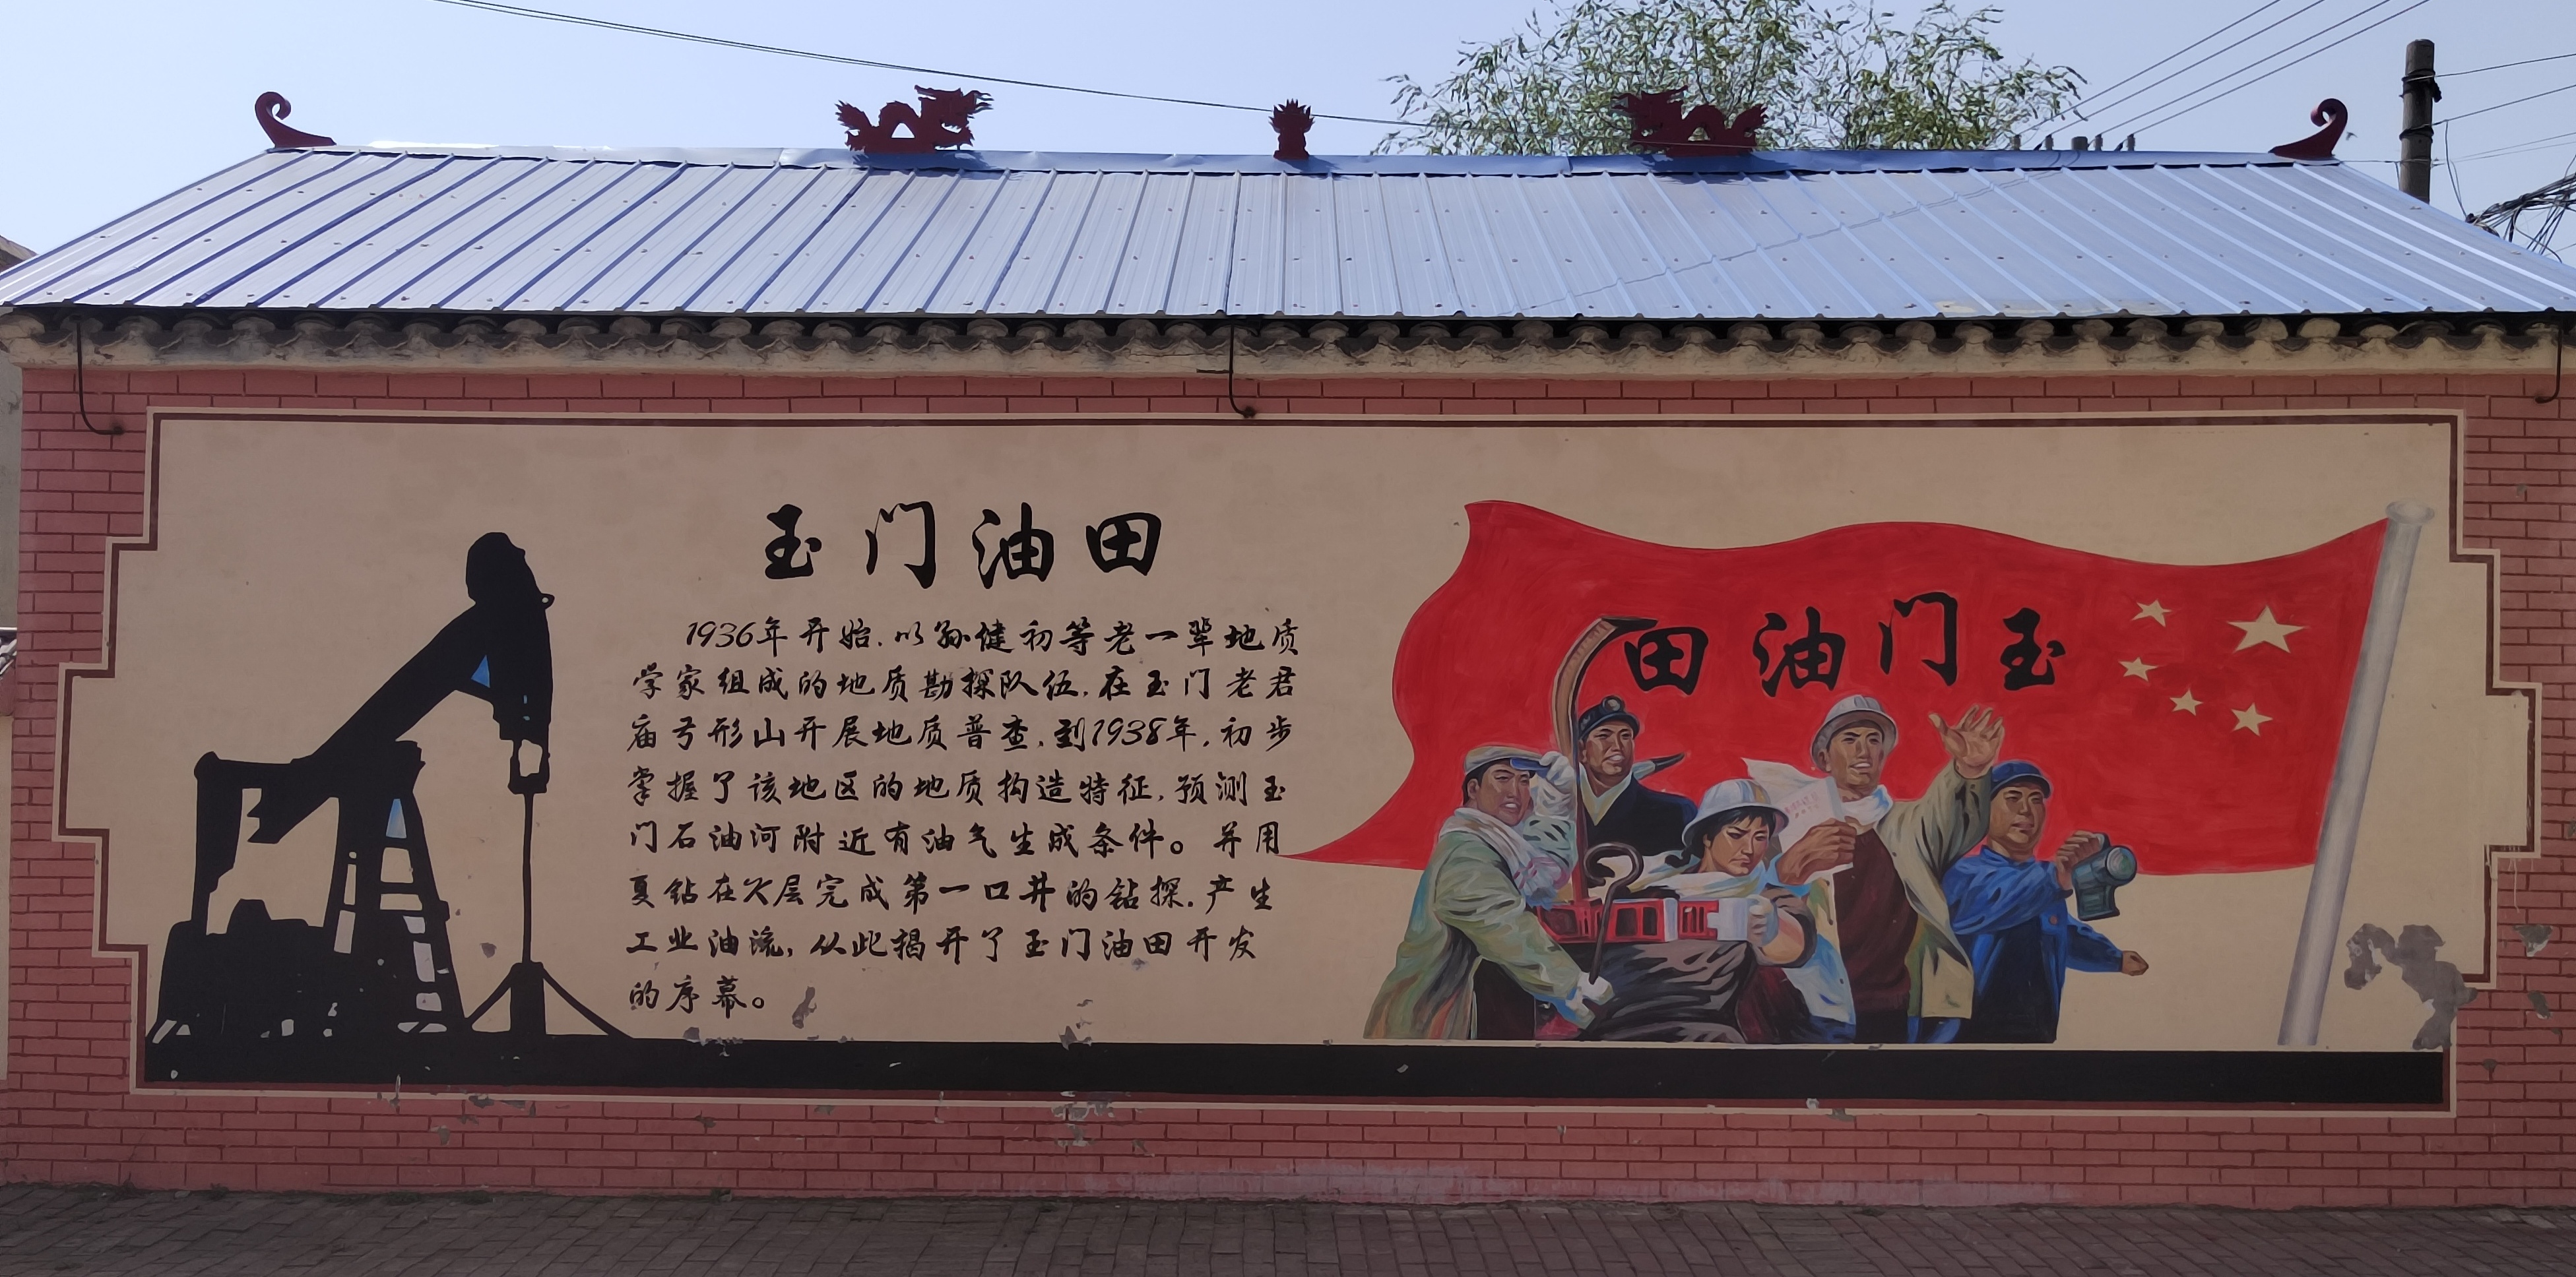 玉门油田
1936年开始,以孙健初等老一辈地质
学家组成的地质勘探队伍,在玉门老君
庙弓形山开展地质普查,到1938年,初步
掌握了该地区的地质构造特征,预测玉
门石油河附近有油气生成条件。并用
夏钻在K层完成第一口井的钻探,产生
工业油流,从此揭开了玉门油田开发
的序幕。
田油门玉